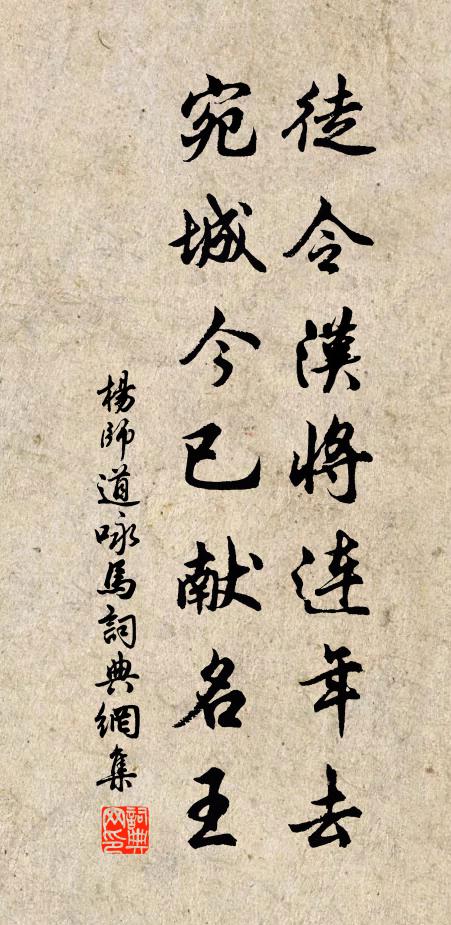 徒令漢將連年去
宛城今已献名王
楊師道咏馬詞典網集
詞典網印